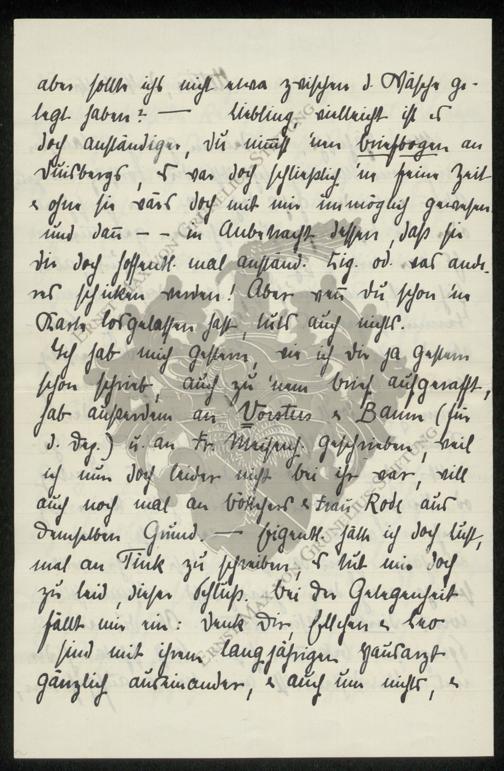 aber sollte ichs nicht etwa zwischen d. Wäsche ge-
legt haben? — Liebling, vielleicht ist es
doch anständiger, Du nimmst 'nen Briefbogen an
Duisbergs, es war doch schließlich 'ne feine Zeit
& ohne sie wärs doch mit mir unmöglich gewesen
und dann – – in Anbetracht dessen, daß sie
Dir doch hoffentl. mal anständ. Zig. od. was ande-
res schicken werden! Aber wenn Du schon 'ne
Karte losgelassen hast, tuts auch nichts.
Ich hab mich gestern, wie ich Dir ja gestern
schon schrieb, auch zu 'nem Brief aufgerafft,
hab außerdem an Vorster & Baum (für
d. Dez.) u. an Fr. geschrieben, weil
ich nun doch leider nicht bei ihr war, will
auch noch mal an Böttchers & Frau Rode aus
demselben Grund. — Eigentl. hätte ich doch Lust,
mal an Tink zu schreiben, es tut mir doch
zu leid, dieser Schluß. Bei der Gelegenheit
fällt mir ein: denk Dir Ellchen & Leo
sind mit ihrem langjährigen Hausarzt
gänzlich auseinander, & auch um nichts, &
ERNST MAX VON GRUNELIUS-STIFTUNG
ERNST MAX VON GRUNELIUS-STIFTUNG